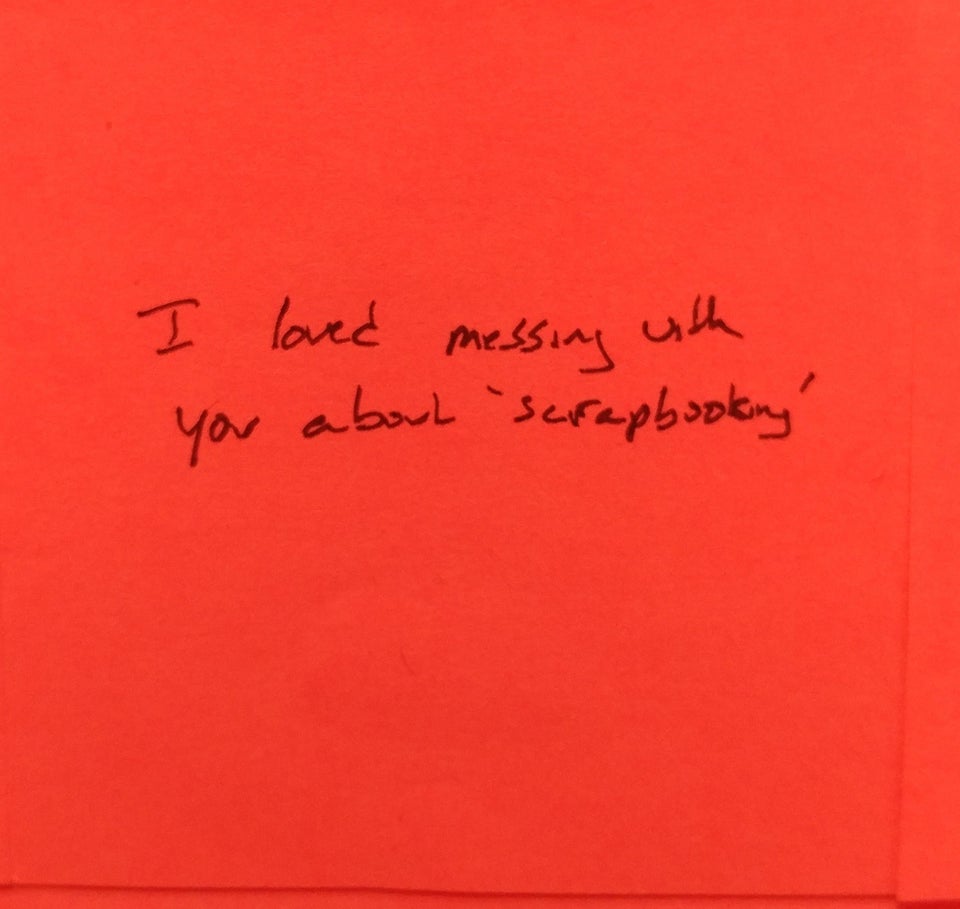 I loved messing with
you about 'scrapbooking'